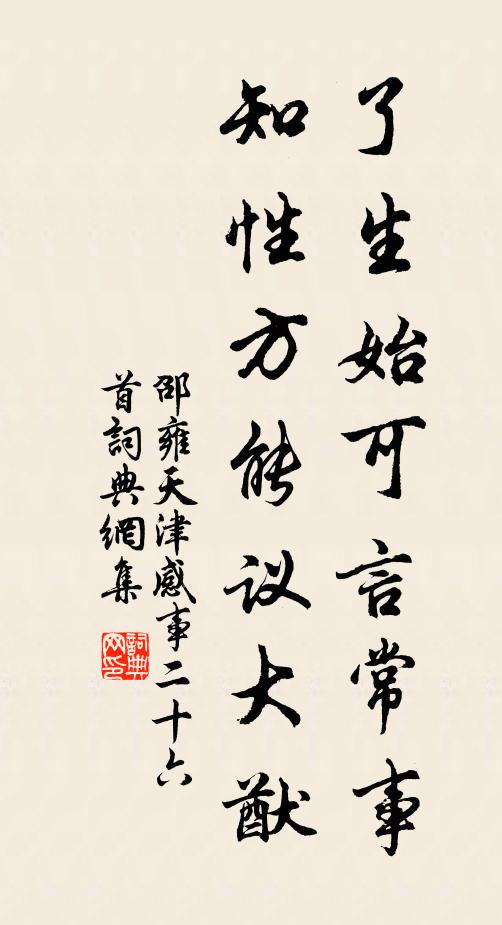 了生始可言常事
知性方能议大猷
邵雍天津感事二十六
首詞典網集
詞典网印